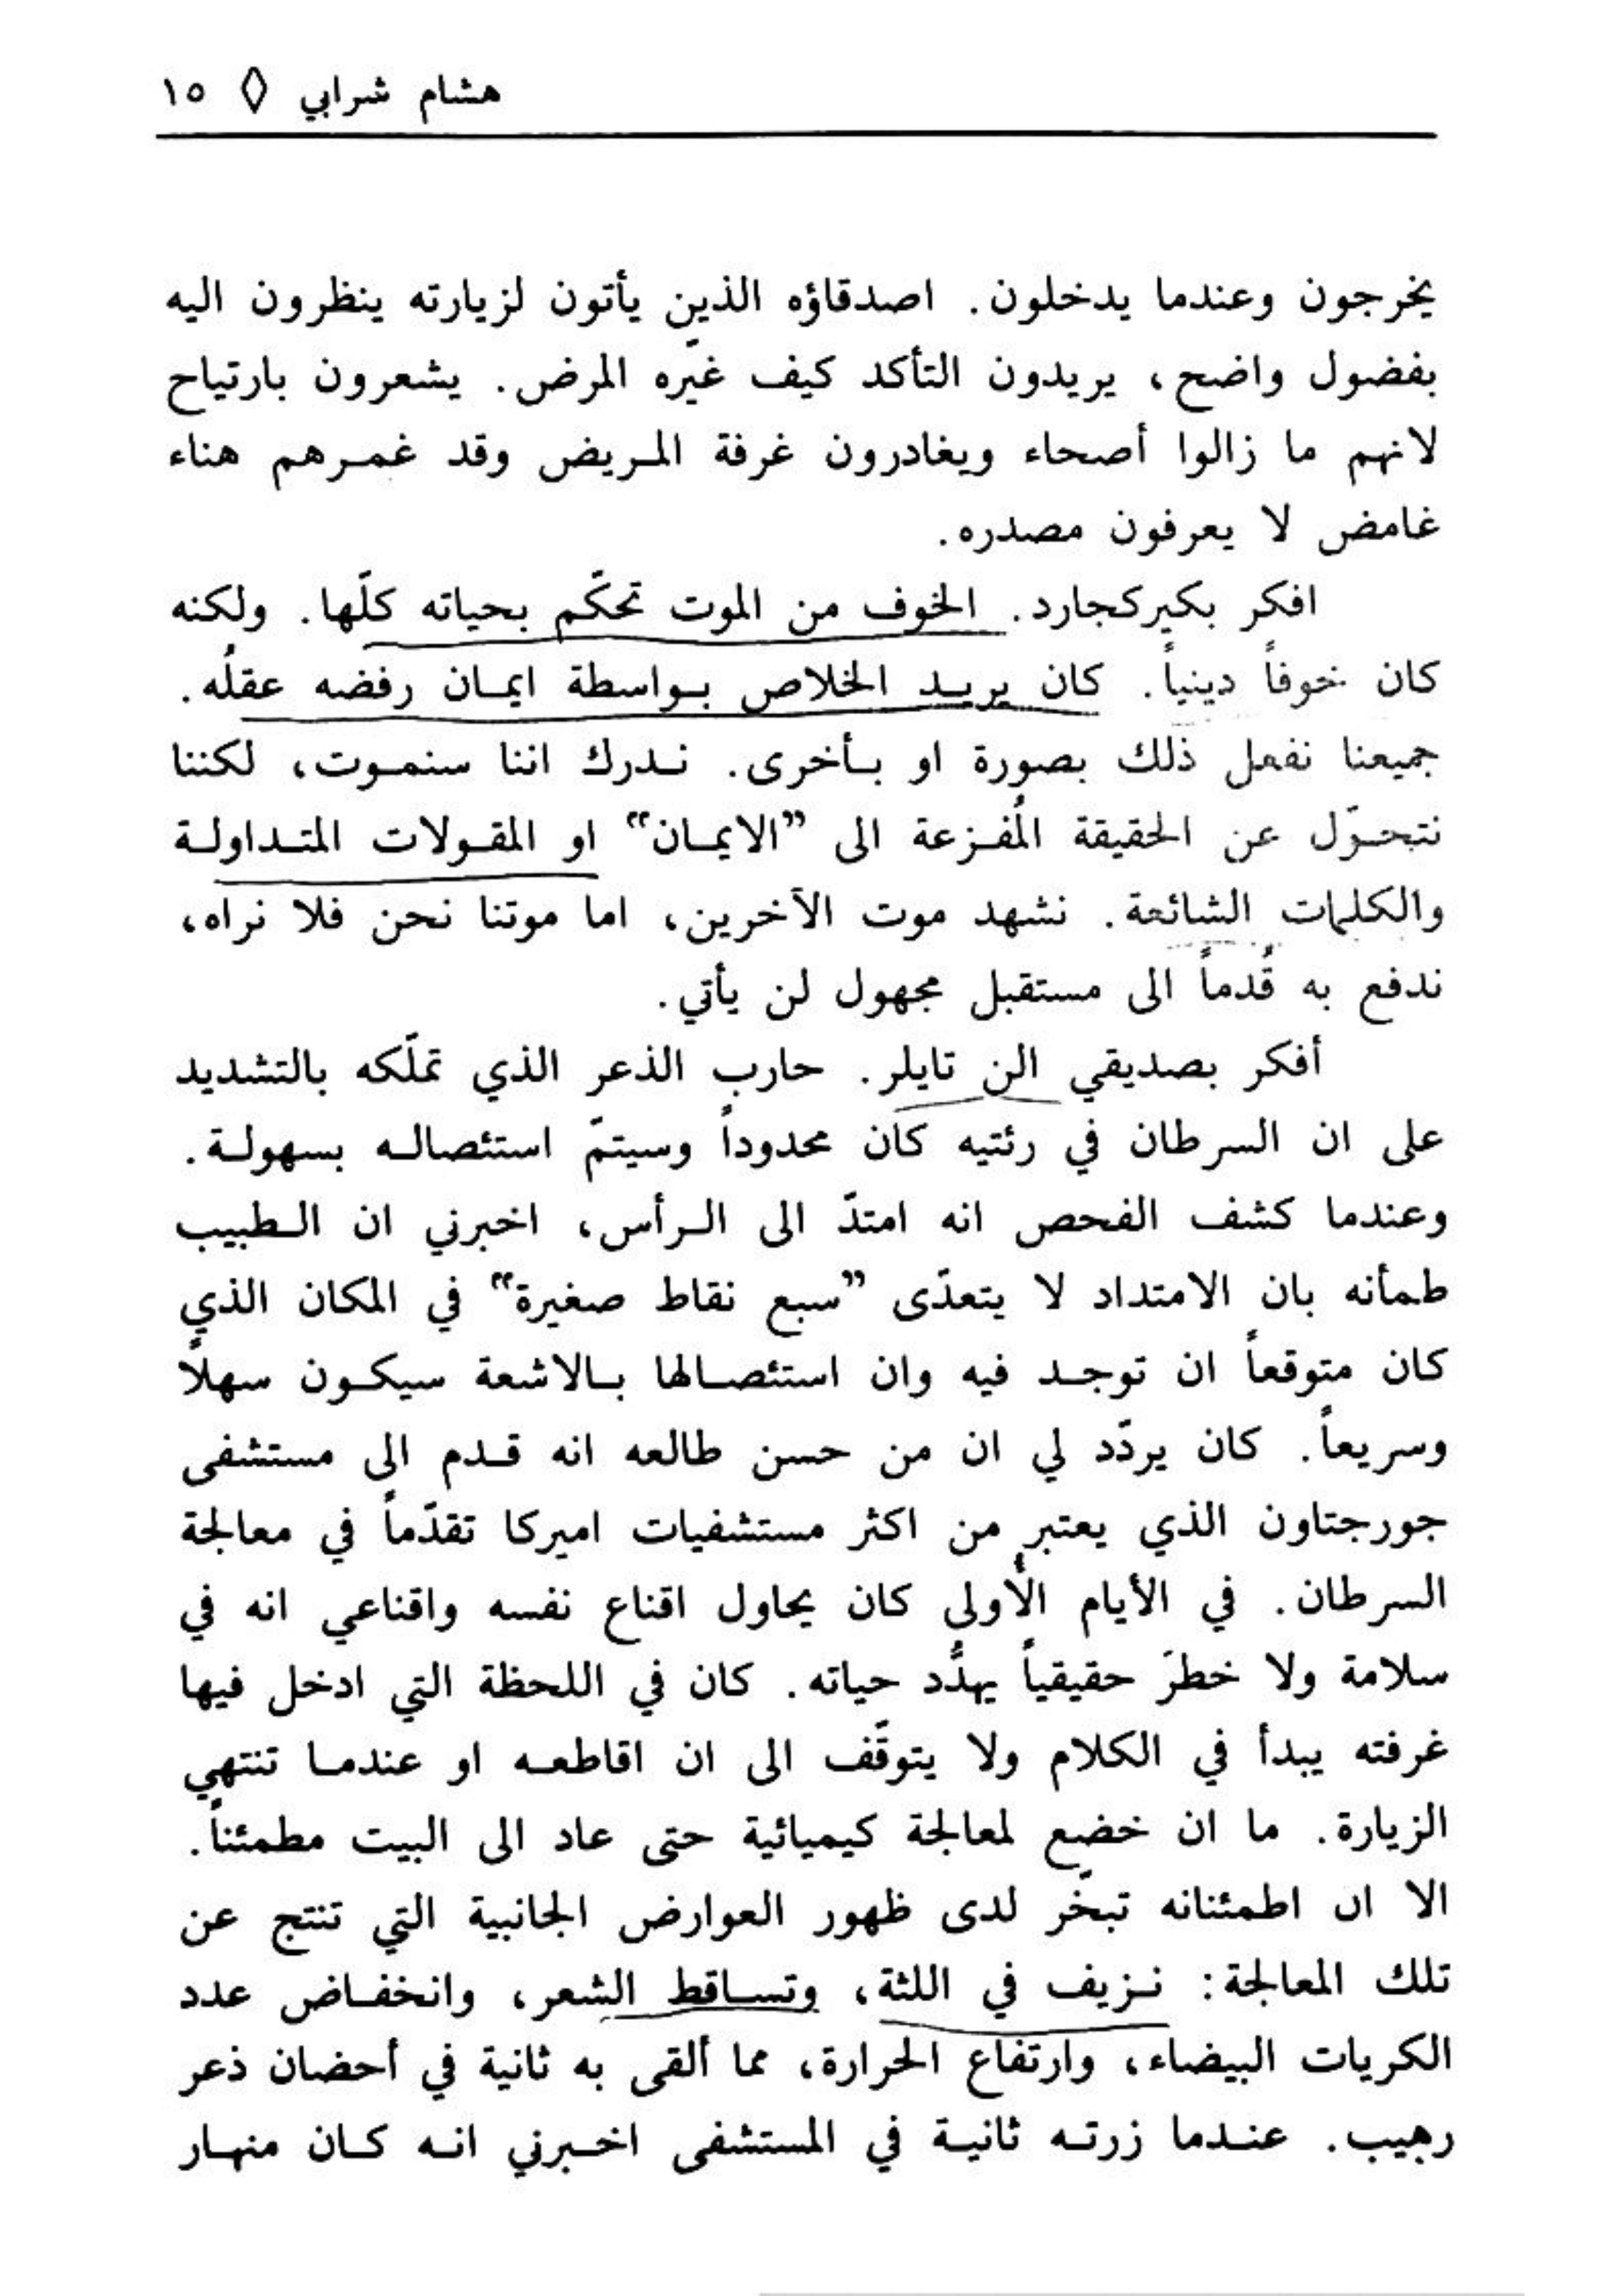 هشام شرابي ◊ ١٥
يخرجون وعندما يدخلون. اصدقاؤه الذين يأتون لزيارته ينظرون اليه
بفضول واضح، يريدون التأكد كيف غيّره المرض. يشعرون بارتياح
لانهم ما زالوا أصحاء ويغادرون غرفة المريض وقد غمرهم هناء
غامض لا يعرفون مصدره.
افكر بكيركجارد. الخوف من الموت تحكّم بحياته كلّها. ولكنه
كان خوفاً دينياً. كان يريد الخلاص بواسطة ايمان رفضه عقلُه.
جميعنا نفعل ذلك بصورة او بأخرى. ندرك اننا سنموت، لكننا
نتحوّل عن الحقيقة المُفزعة الى ”الايمان“ او المقولات المتداولة
والكلمات الشائعة. نشهد موت الآخرين، اما موتنا نحن فلا نراه،
ندفع به قُدماً الى مستقبل مجهول لن يأتي.
أفكر بصديقي الن تايلر. حارب الذعر الذي تملّكه بالتشديد
على ان السرطان في رئتيه كان محدوداً وسيتمّ استئصاله بسهولة.
وعندما كشف الفحص انه امتدّ الى الرأس، اخبرني ان الطبيب
طمأنه بان الامتداد لا يتعدّى ”سبع نقاط صغيرة“ في المكان الذي
كان متوقعاً ان توجد فيه وان استئصالها بالاشعة سيكون سهلاً
وسريعاً. كان يردّد لي ان من حسن طالعه انه قدم الى مستشفى
جورجتاون الذي يعتبر من اكثر مستشفيات اميركا تقدّماً في معالجة
السرطان. في الأيام الأُولى كان يحاول اقناع نفسه واقناعي انه في
سلامة ولا خطرَ حقيقياً يهدُّد حياته. كان في اللحظة التي ادخل فيها
غرفته يبدأ في الكلام ولا يتوقّف الى ان اقاطعه او عندما تنتهي
الزيارة. ما ان خضع لمعالجة كيميائية حتى عاد الى البيت مطمئناً.
الا ان اطمئنانه تبخّر لدى ظهور العوارض الجانبية التي تنتج عن
تلك المعالجة: نزيف في اللثة، وتساقط الشعر، وانخفاض عدد
الكريات البيضاء، وارتفاع الحرارة، مما ألقى به ثانية في أحضان ذعر
رهيب. عندما زرته ثانية في المستشفى اخبرني انه كان منهار